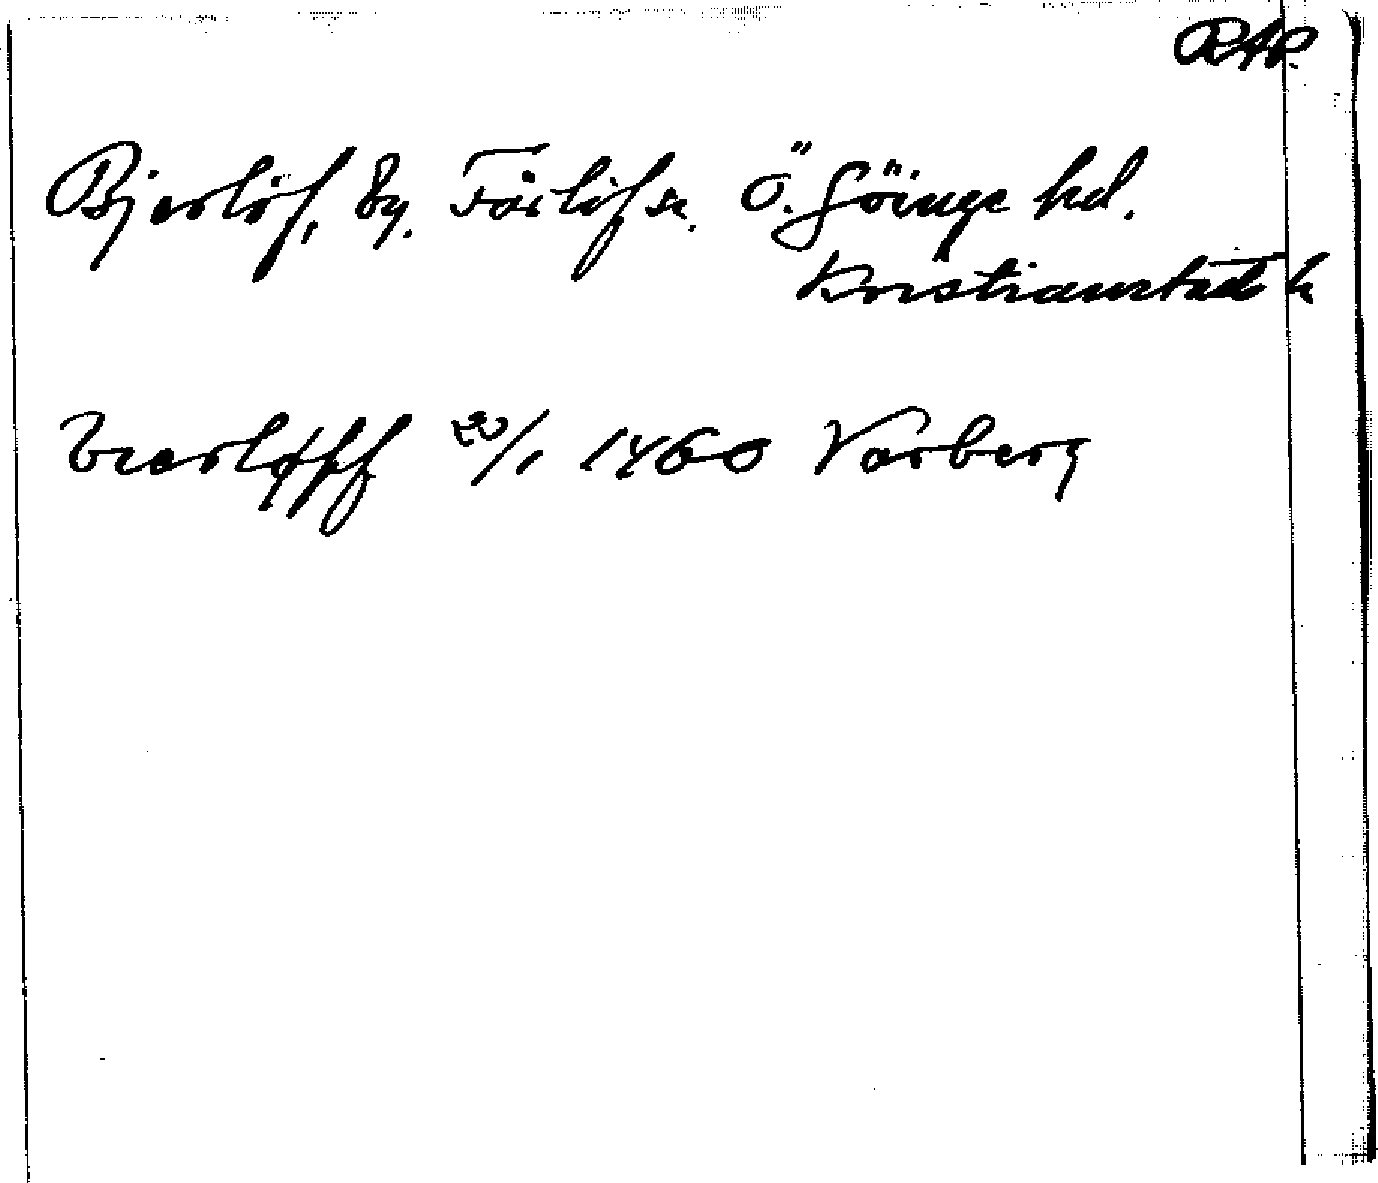 RAP
Bjerlöf, by. Färlöf sn. Ö. Göinge hd.
Kristianstads l.
bierløff 20/1 1460 Varberg